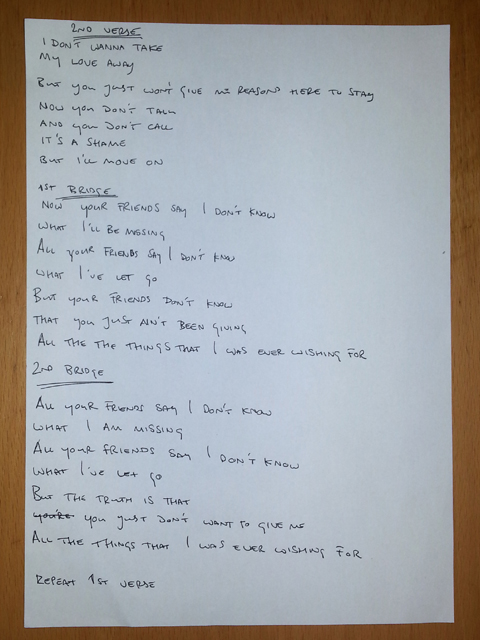 2ND VERSE
I DON'T WANNA TAKE
MY LOVE AWAY
BUT YOU JUST WON'T GIVE ME REASONS HERE TO STAY
NOW YOU DON'T TALK
AND YOU DON'T CALL
IT'S A SHAME
BUT I'LL MOVE ON
1ST BRIDGE
NOW YOUR FRIENDS SAY I DON'T KNOW
WHAT I'LL BE MISSING
ALL YOUR FRIENDS SAY I DON'T KNOW
WHAT I'VE LET GO
BUT YOUR FRIENDS DON'T KNOW
THAT YOU JUST AIN'T BEEN GIVING
ALL THE THE THINGS THAT I WAS EVER WISHING FOR
2ND BRIDGE
ALL YOUR FRIENDS SAY I DON'T KNOW
WHAT I AM MISSING
ALL YOUR FRIENDS SAY I DON'T KNOW
WHAT I'VE LET GO
BUT THE TRUTH IS THAT
YOU'RE YOU JUST DON'T WANT TO GIVE ME
ALL THE THINGS THAT I WAS EVER WISHING FOR
REPEAT 1ST VERSE